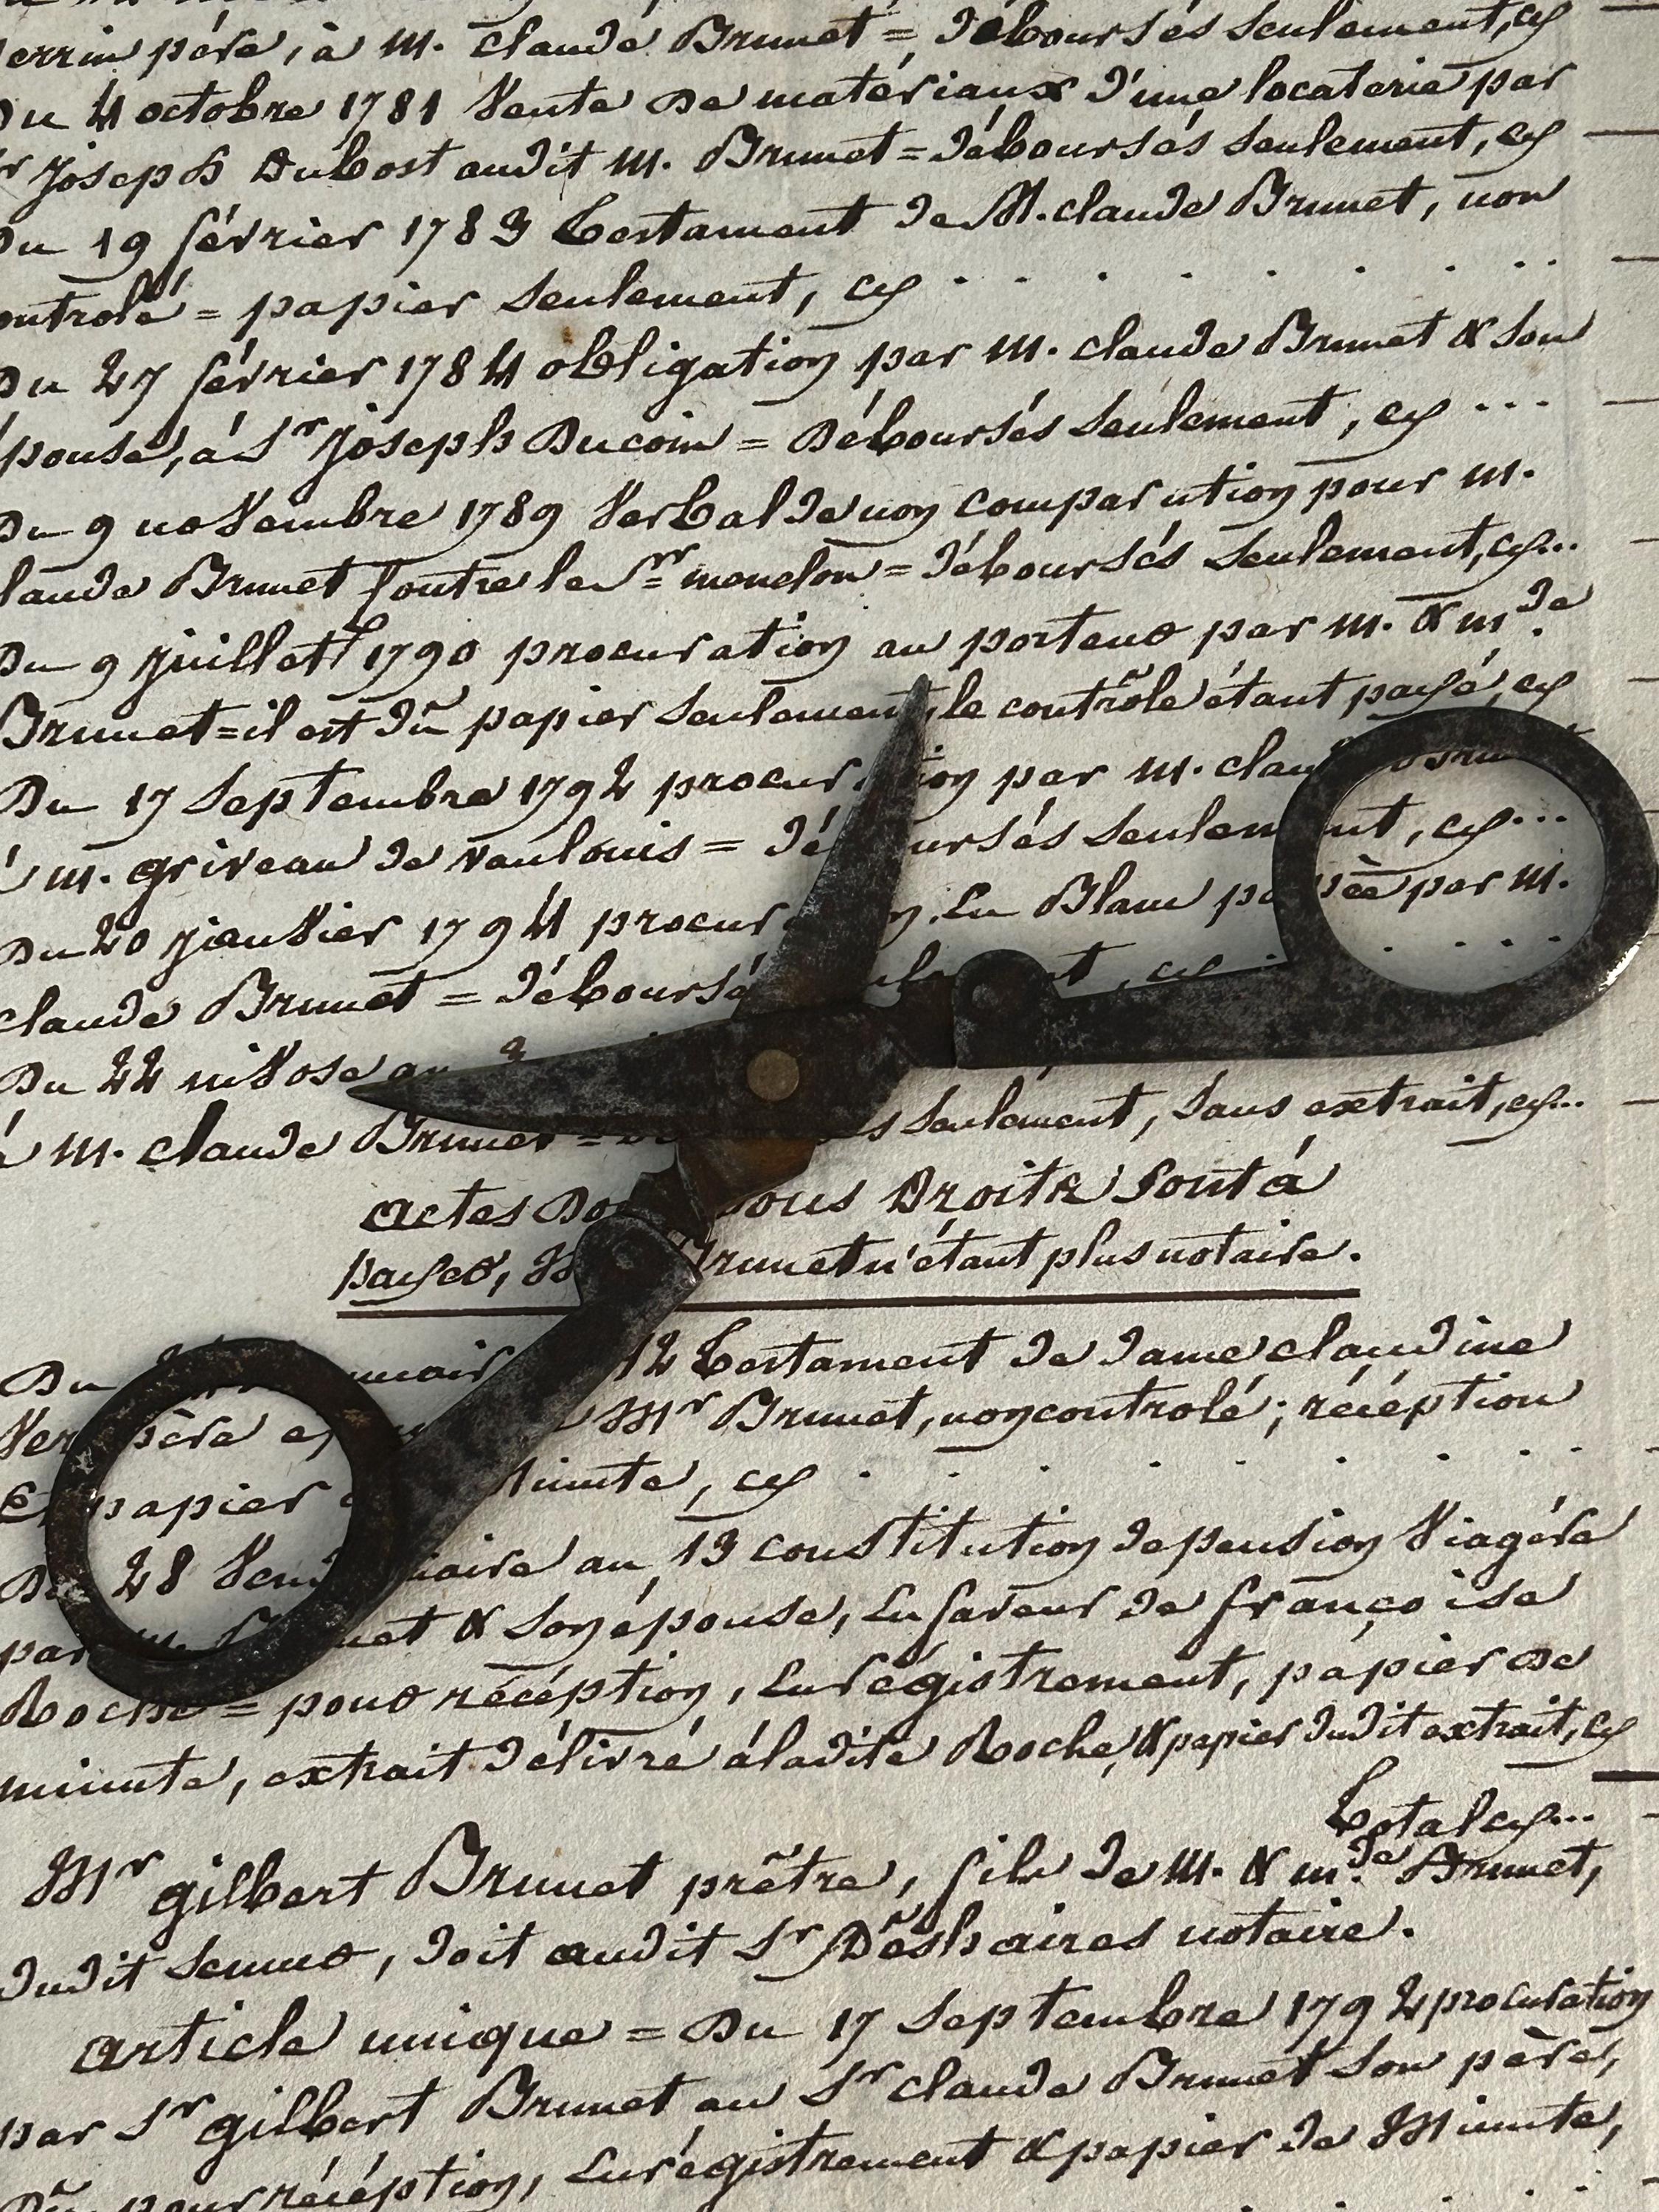 errin père, à m. claude Brunet = Déboursés seulement, cy
Du 4 octobre 1781 Vente De matériaux d'une locaterie par
Sr Joseph Dubost audit m. Brunet = déboursés seulement, cy
Du 19 février 1783 testament de M. claude Brunet, non
ontrolé = papier seulement, cy
Du 27 février 1784 obligation par m. claude Brunet & son
épouse, à Sr Joseph Ducoin = Déboursés seulement, cy
Du 9 novembre 1789 Verbal de non comparution pour m.
laude Brunet contre le Sr = déboursés seulement, cy
Du 9 Juillet 1790 procuration au porteur par m. & mde
Brunet = il est dû papier seulement, le contrôle étant payé, cy
Du 17 Septembre 1792 procur ion par m. clau
à m. griveau de vaulouis = dé ursés seulem nt, cy
Du 20 Janvier 1794 procur n En Blanc pa sée par m.
claude Brunet = débours nt, cy
Du 22 nivose an 3
à m. claude Brunet = s seulement, sans extrait, cy
actes Do ous Droits sont à
payer, M Brunet n'étant plus notaire.
Du maire 12 testament de dame claudine
Ver ère Mr Brunet, non controlé; réception
Et papier minute, cy
Du 28 Ven iaire an 13 constitution de pension Viagére
par m. et & son épouse, En faveur de françoise
Roche = pour réception, Enrégistrement, papier De
minute, extrait délivré à ladite Roche, & papier dudit extrait, cy
total cy
Mr gilbert Brunet prêtre, fils de m. & mde Brunet,
dudit Sennes, doit audit Sr Déshaires notaire.
article unique = Du 17 Septembre 1792 procuration
par Sr gilbert Brunet au Sr claude Brunet son père,
Dû pour réception, Enrégistrement & papier de Minute,